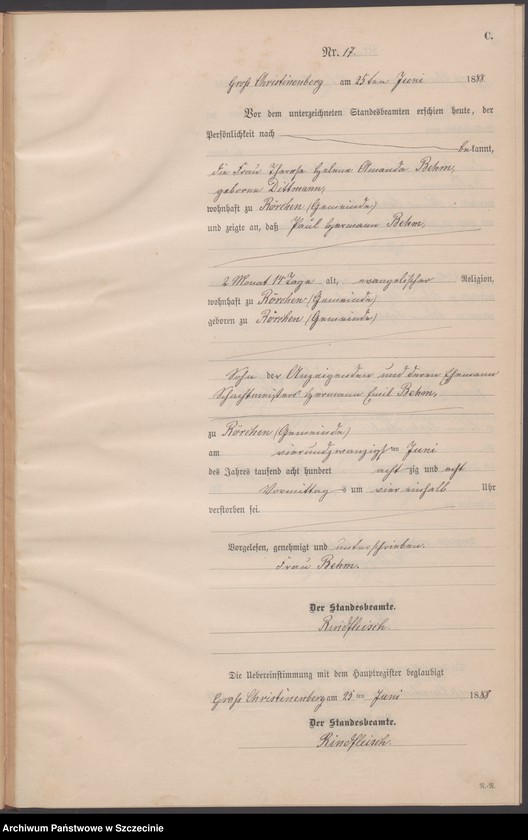 C.
Nr. 17.
Groß Christinenberg am 25ten Juni 1888
Vor dem unterzeichneten Standesbeamten erschien heute, der
Persönlichkeit nach
bekannt,
die Frau Therese Helene Amanda Behm,
geborene Dittmann,
wohnhaft zu Rörchen (Gemeinde)
und zeigte an, daß Paul Hermann Behm,
2 Monat 14 Tage alt, evangelischer Religion,
wohnhaft zu Rörchen (Gemeinde)
geboren zu Rörchen (Gemeinde)
Sohn der Anzeigenden und deren Ehemann
Schachtmeisters Hermann Emil Behm,
zu Rörchen (Gemeinde)
am vierundzwanzigsten Juni
des Jahres tausend acht hundert achtzig und acht
Vormittags um vier einhalb Uhr
verstorben sei.
Vorgelesen, genehmigt und unterschrieben.
Frau Behm.
Der Standesbeamte.
Rindfleisch.
Die Uebereinstimmung mit dem Hauptregister beglaubigt
Groß Christinenberg am 25ten Juni 1888
Der Standesbeamte.
Rindfleisch.
Archiwum Państwowe w Szczecinie